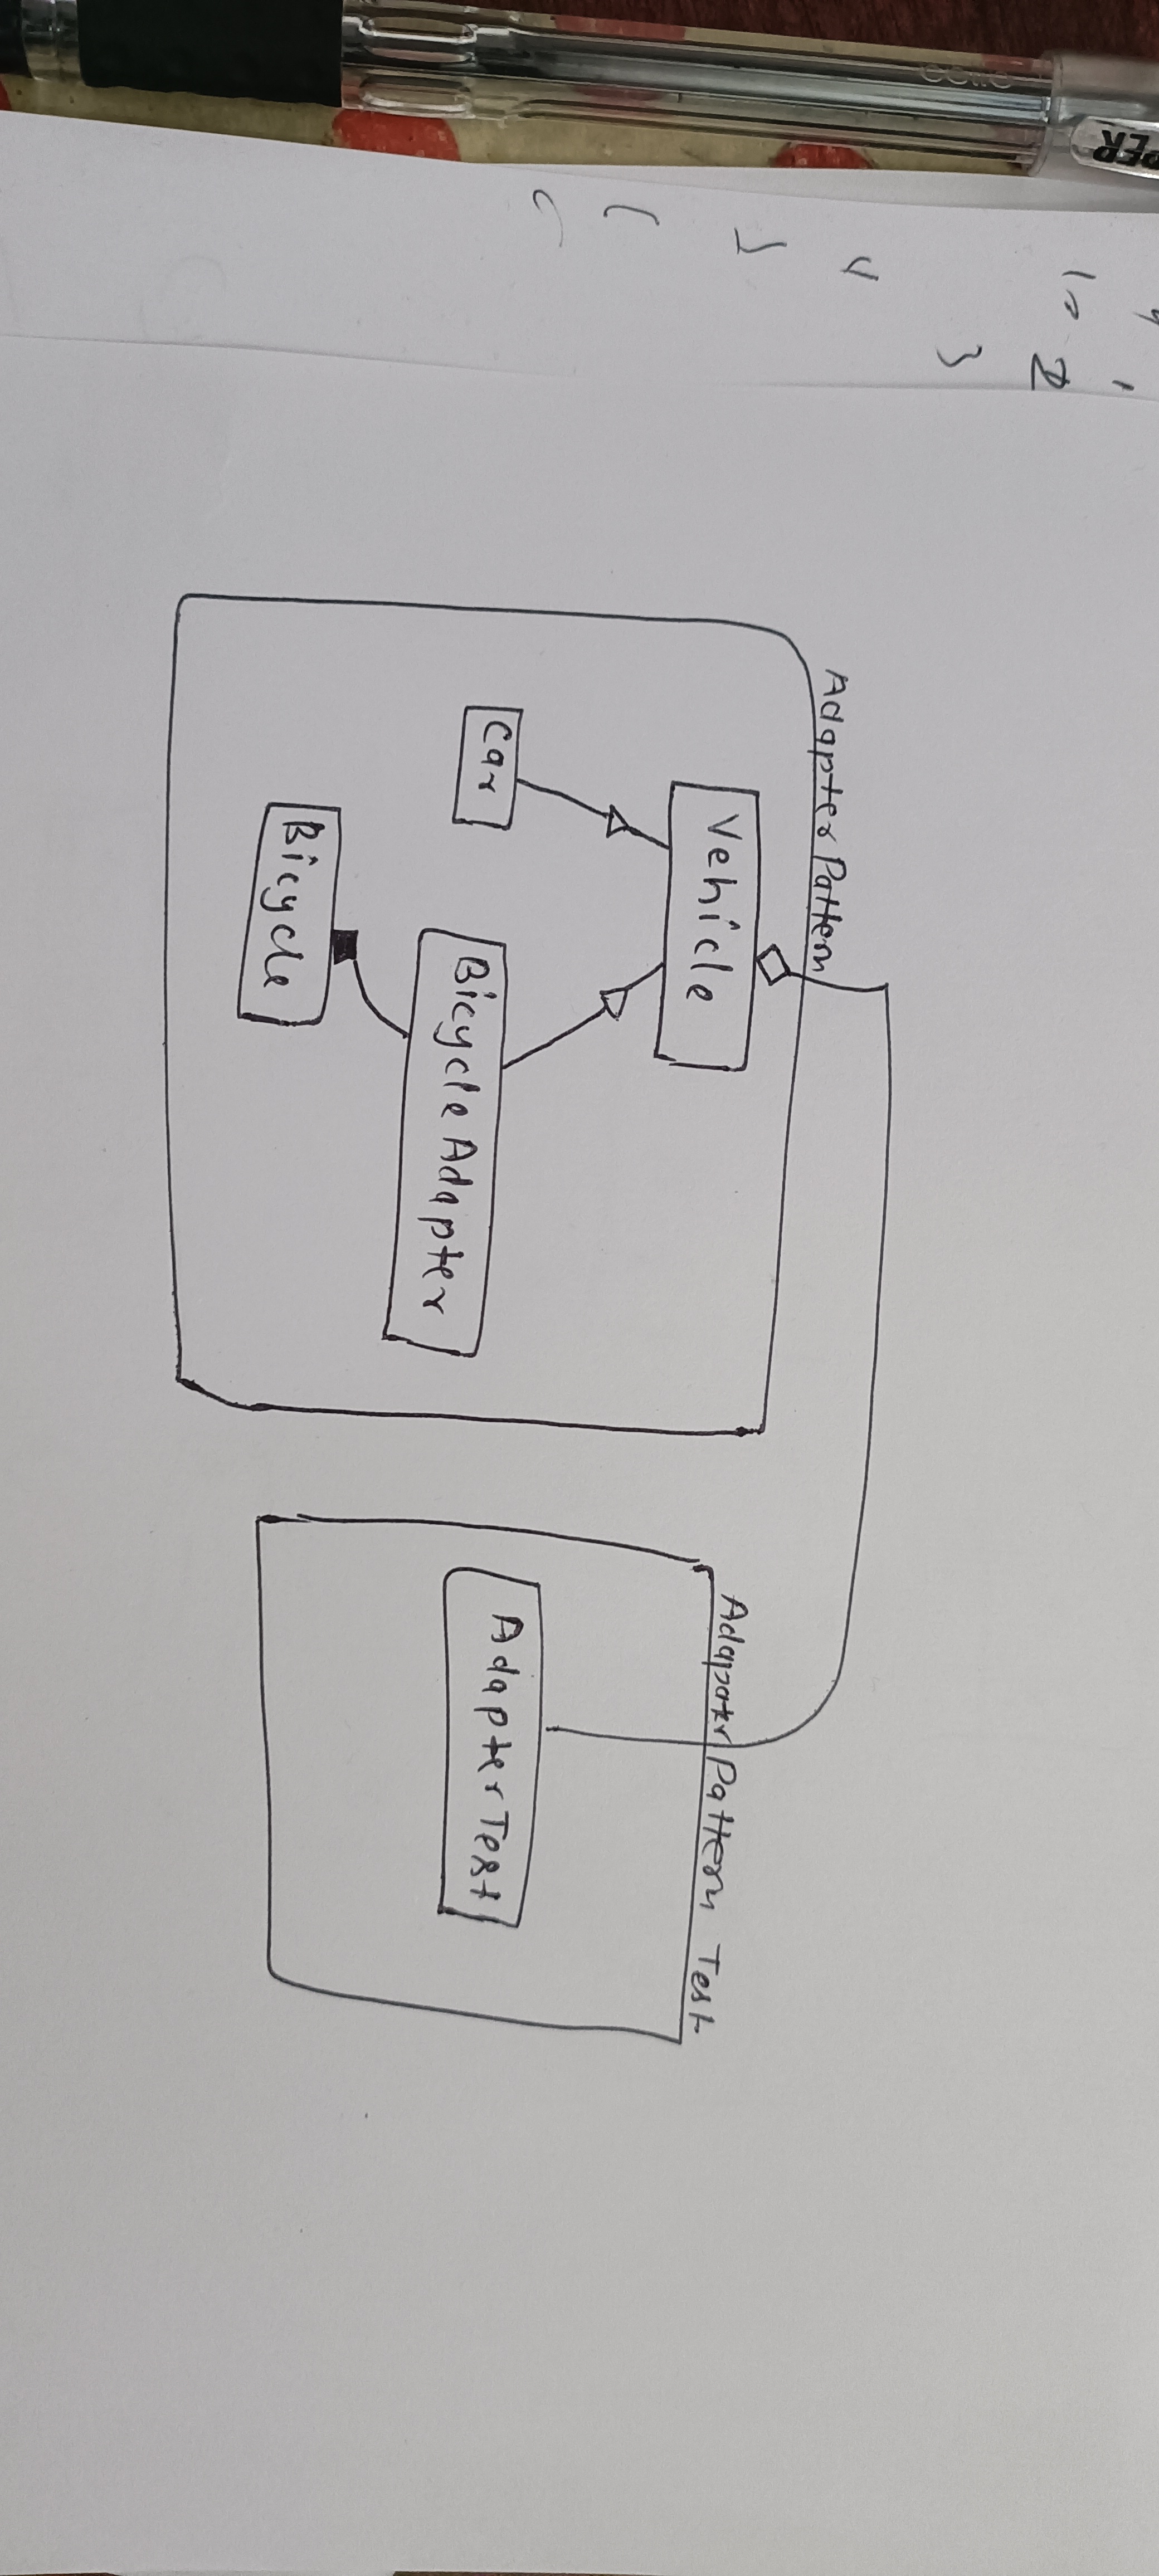 PER
1
2
3
4
Adapter Pattern
Vehicle
Car
Bicycle Adapter
Bicycle
Adapater Pattern Test
Adapter Test